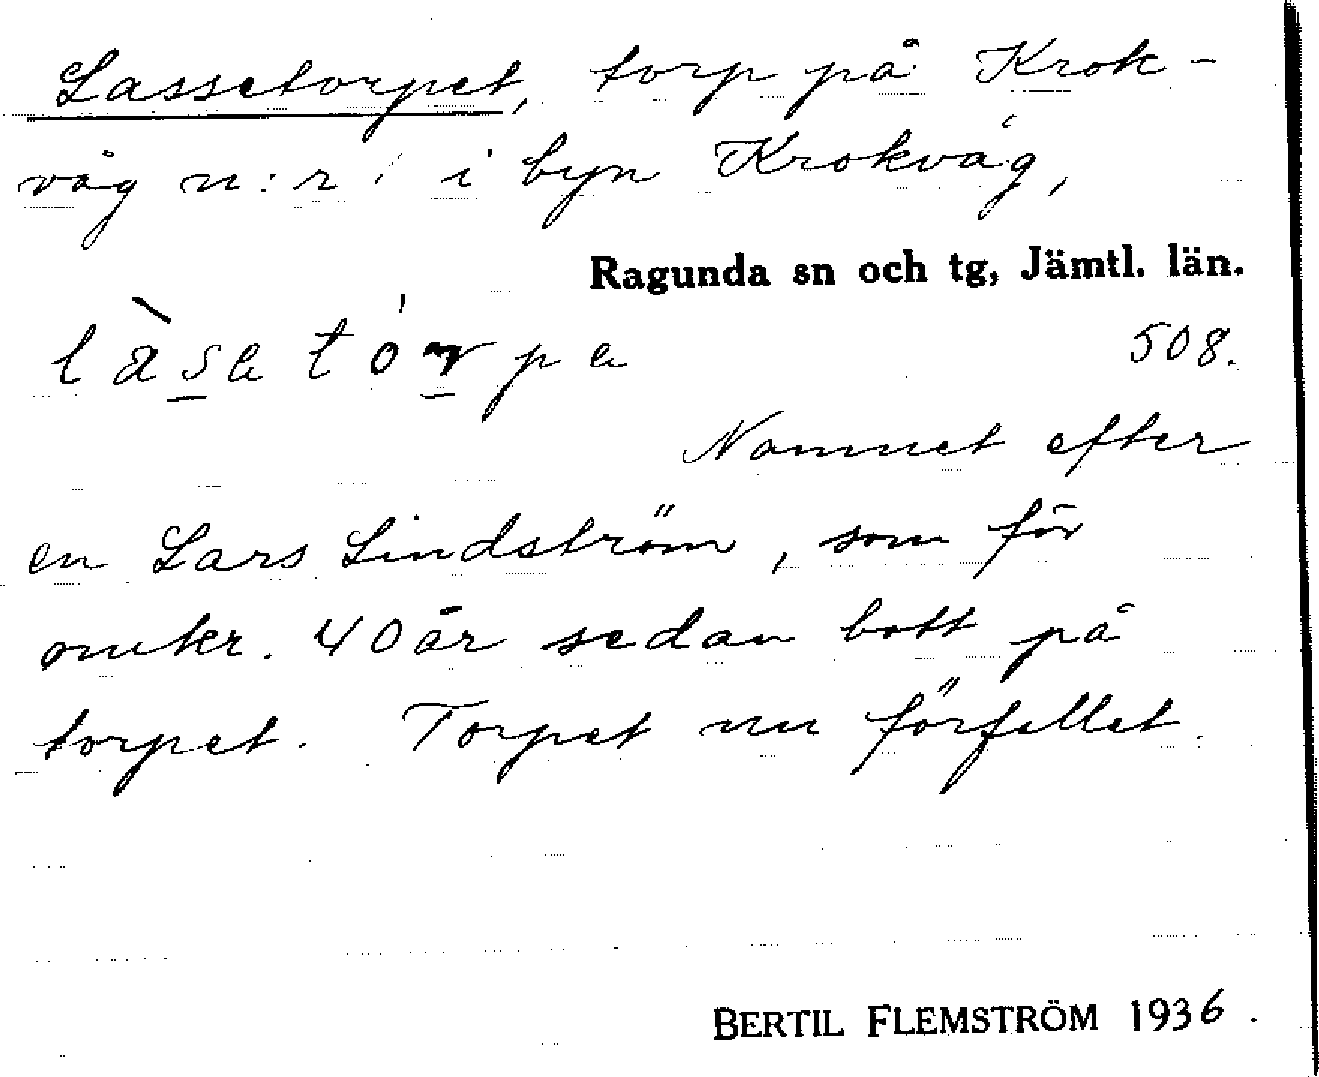 Lassetorpet, torp på Krok-
våg n:r 1 i byn Krokvåg,
Ragunda sn och tg, Jämtl. län.
làsetórpe
508.
Namnet efter
en Lars Lindström, som för
omkr. 40 år sedan bott på
torpet. Torpet nu förfallet.
BERTIL FLEMSTRÖM 1936.